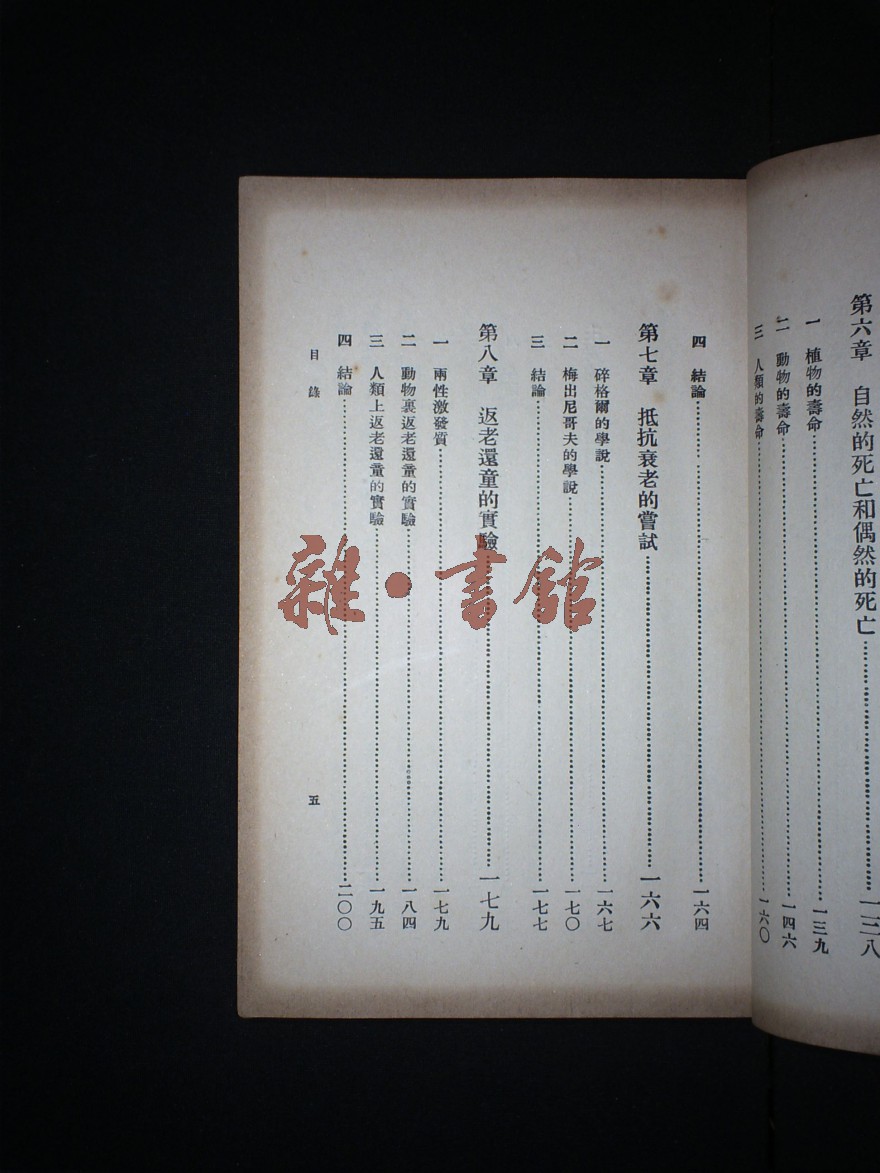 第六章　自然的死亡和偶然的死亡……一三八
一　植物的壽命……一三九
二　動物的壽命……一四六
三　人類的壽命……一六〇
四　結論……一六四
第七章　抵抗衰老的嘗試……一六六
一　碎格爾的學說……一六七
二　梅出尼哥夫的學說……一七〇
三　結論……一七七
第八章　返老還童的實驗……一七九
一　兩性激發質……一七九
二　動物裏返老還童的實驗……一八四
三　人類上返老還童的實驗……一九五
四　結論……二〇〇
目錄
五
雜·書館